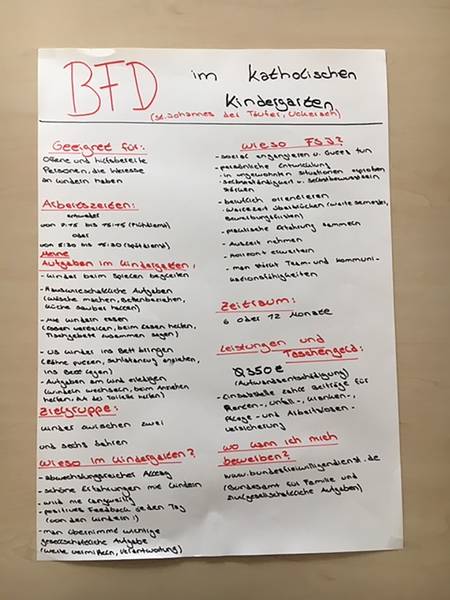 BFD im katholischen
Kindergarten
(St. Johannes der Täufer, Uckerath)
Geeignet für:
Offene und hilfsbereite
Personen, die Interesse
an Kindern haben
Arbeitszeiten:
entweder
von 7:15 bis 15:15 (Frühdienst)
oder
von 8:30 bis 15:30 (Spätdienst)
Meine
Aufgaben im Kindergarten:
- Kinder beim Spielen begleiten
- Hauswirtschaftliche Aufgaben
(Wäsche machen, Betten beziehen,
Küche sauber halten)
- Mit Kindern essen
(Essen verteilen, beim Essen helfen,
Tischgebete zusammen sagen)
- U3 Kinder ins Bett bringen
(Zähne putzen, Schlafanzug anziehen,
ins Bett legen)
- Aufgaben am Kind erledigen
(Windeln wechseln, beim Anziehen
helfen, auf der Toilette helfen)
Zielgruppe:
Kinder zwischen zwei
und sechs Jahren
Wieso im Kindergarten?
- abwechslungsreicher Alltag
- schöne Erfahrungen mit Kindern
- wird nie langweilig
- positives Feedback jeden Tag
(von den Kindern!)
- man übernimmt wichtige
gesellschaftliche Aufgabe
(Werte vermitteln, Verantwortung)
Wieso FSJ?
- sozial engagieren u. Gutes tun
- persönliche Entwicklung
- in ungewohnten Situationen erproben
- Selbstständigkeit u. Selbstbewusstsein
stärken
- beruflich orientieren
- Wartezeit überbrücken (Wartesemester,
Bewerbungsfristen)
- praktische Erfahrung sammeln
- Auszeit nehmen
- Horizont erweitern
- man stärkt Team- und Kommuni-
kationsfähigkeiten
Zeitraum:
6 oder 12 Monate
Leistungen und
Taschengeld:
Ø 350€
(Aufwandsentschädigung)
- Einsatzstelle zahlt Beiträge für
Renten-, Unfall-, Kranken-,
Pflege- und Arbeitslosen-
versicherung
Wo kann ich mich
bewerben?
www.bundesfreiwilligendienst.de
(Bundesamt für Familie und
zivilgesellschaftliche Aufgaben)